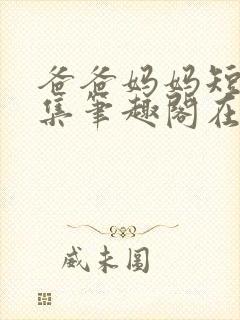 爸爸妈妈短
集筆趣閣在
威未圆